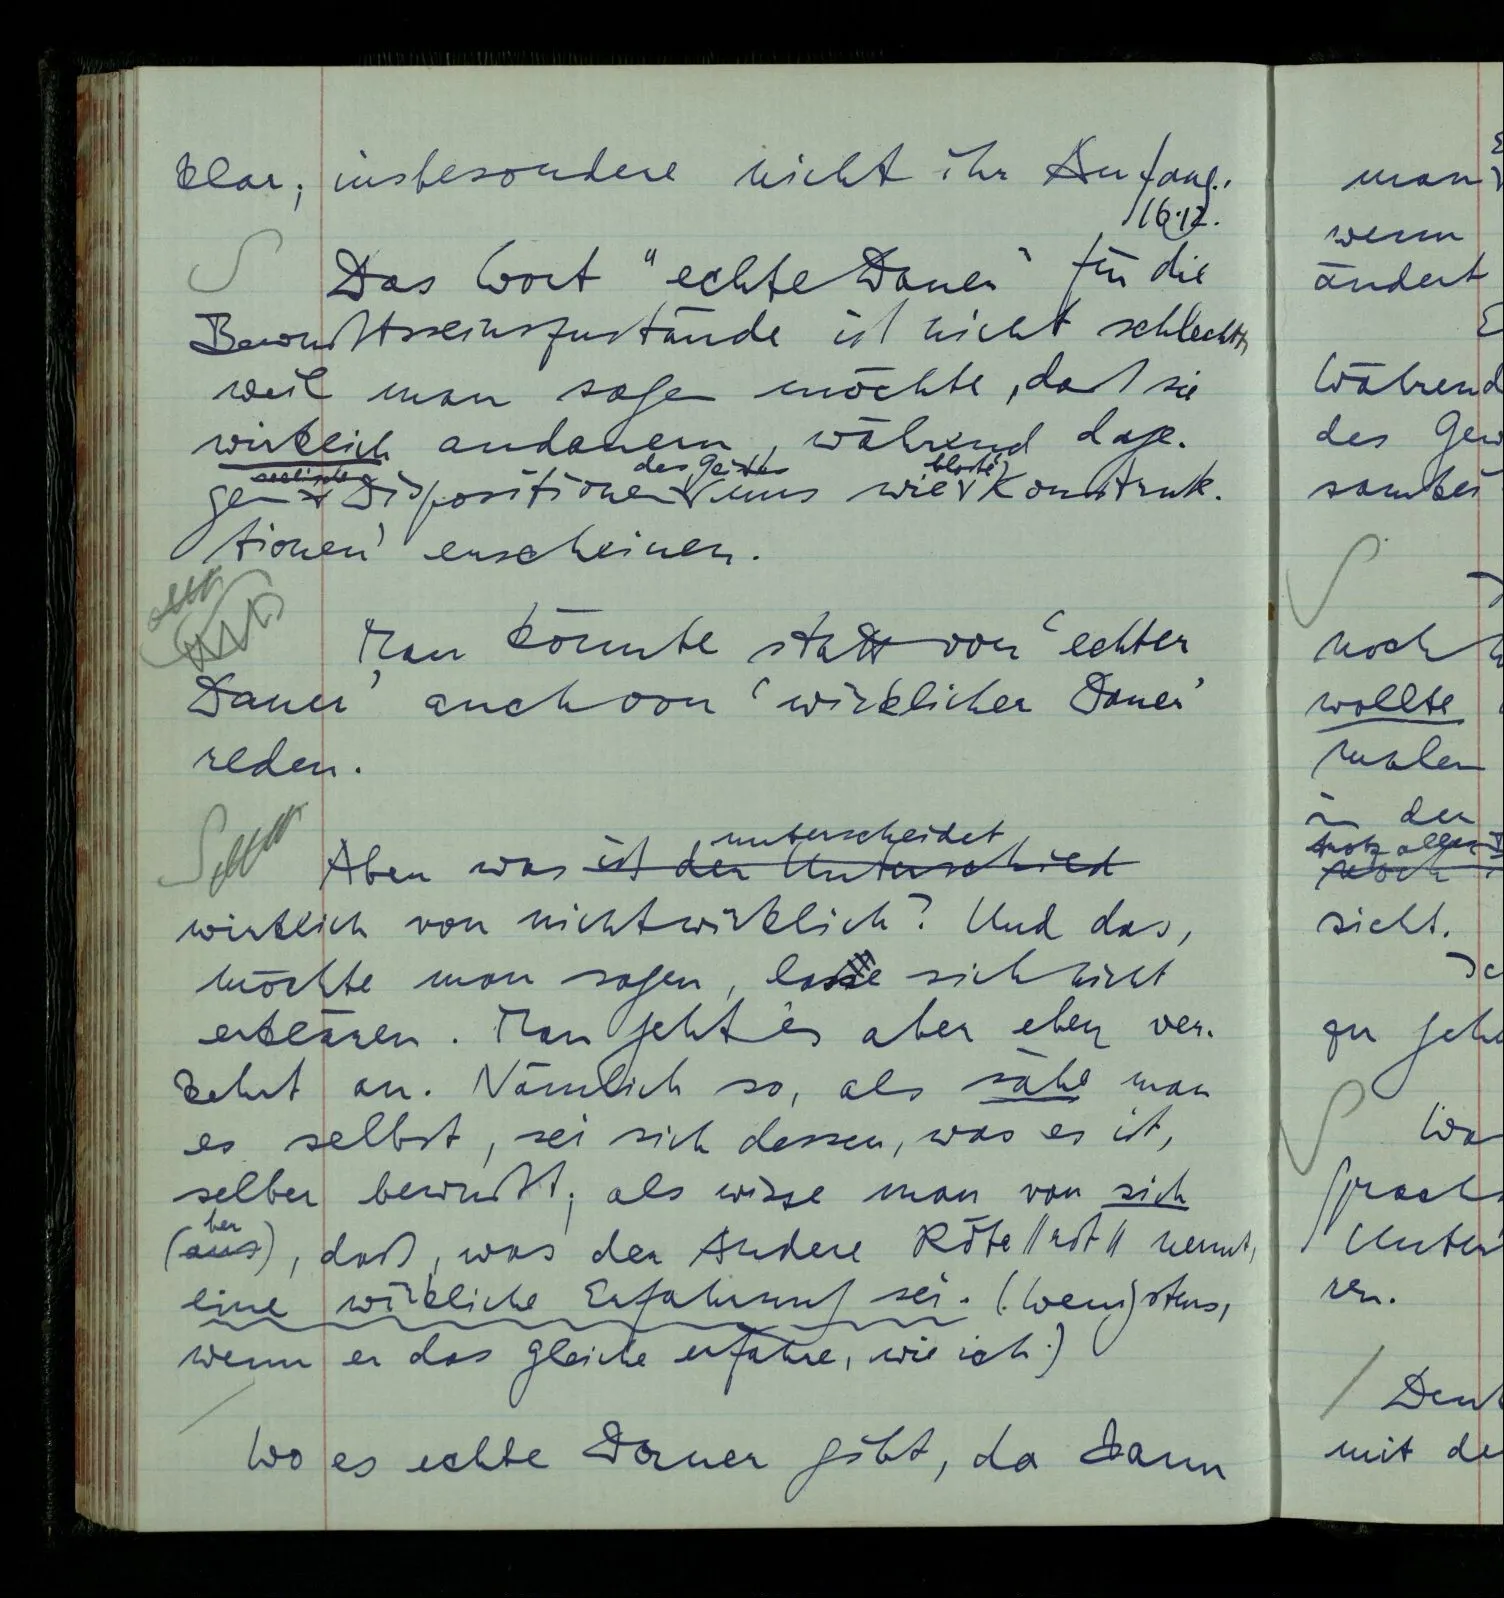 klar, insbesondere nicht ihr Anfang.
16.12.
Das Wort "echte Dauer" für die
Bewußtseinszustände ist nicht schlecht,
weil man sagen möchte, daß sie
wirklich andauern, während dage-
seelische des Geistes bloße
gen Dispositionen uns wie 'Konstruk-
tionen' erscheinen.
Man könnte statt von 'echter
Dauer' auch von 'wirklicher Dauer'
reden.
unterscheidet
Aber was ist der Unterschied
wirklich von nichtwirklich? Und das,
möchte man sagen, lasse sich nicht
erklären. Man geht es aber eben ver-
kehrt an. Nämlich so, als sähe man
es selbst, sei sich dessen, was es ist,
selber bewußt; als wisse man von sich
her
(aus), daß, was der Andere Röte //rot// nennt,
eine wirkliche Erfahrung sei. (Wenigstens,
wenn er das Gleiche erfahre, wie ich.)
Wo es echte Dauer gibt, da kann
man
wenn
ändert
Während
des Gew
noch
wollte
malen
in der
trotz aller
noch
sieht.
zu gehe
Sprach
Unter
ren.
mit de